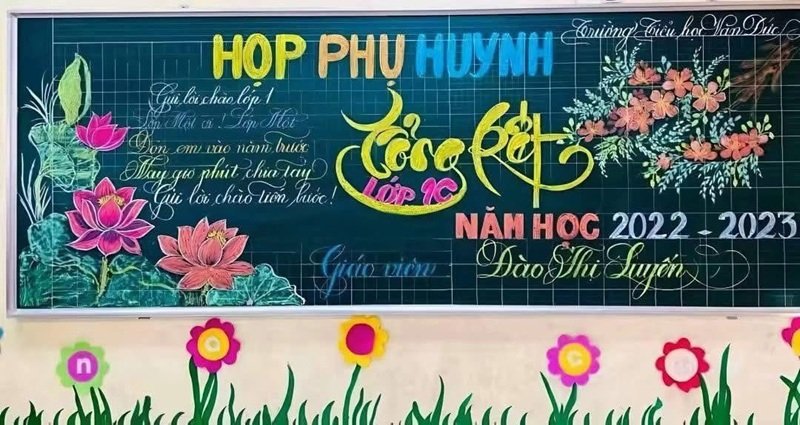 Trường Tiểu học Văn Đức
HỌP PHỤ HUYNH
Gửi lời chào lớp 1
Lớp Một ơi! Lớp Một
Đón em vào năm trước
Nay giờ phút chia tay
Gửi lời chào tiến bước!
Tổng kết
LỚP 1C
NĂM HỌC 2022 - 2023
Giáo viên Đào Thị Luyến
n a c